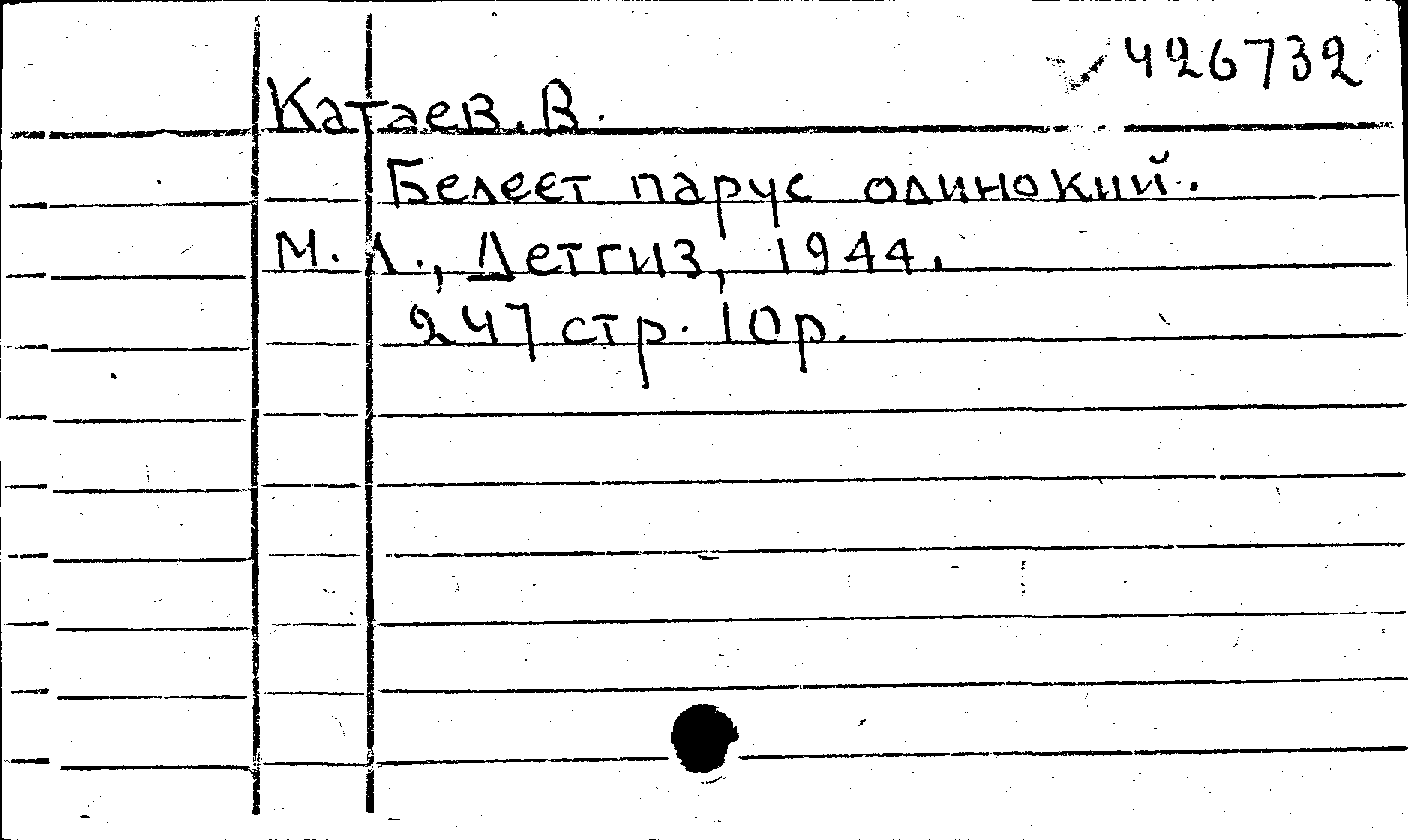 426732
Катаев. В.
Белеет парус одинокий.
М. Л., Детгиз, 1944.
247 стр. 10р.